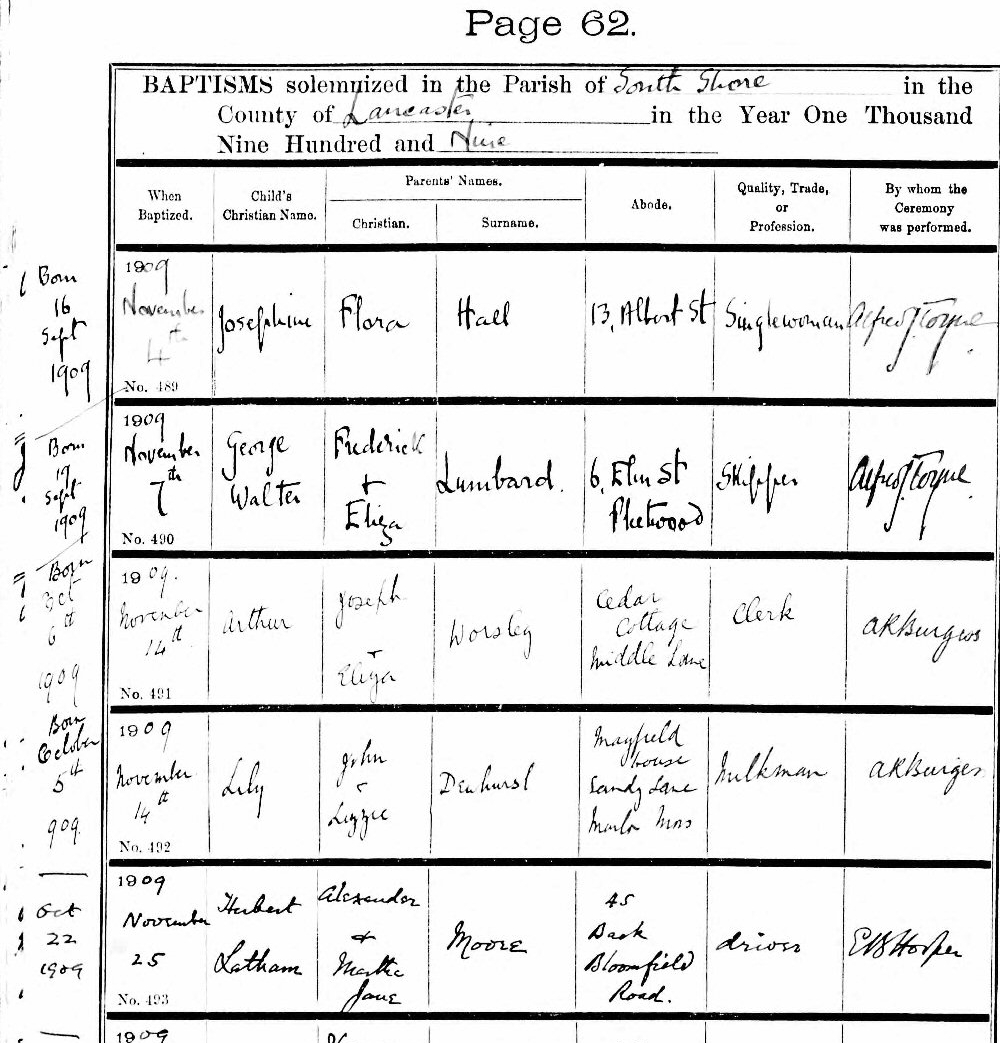 Page 62.
BAPTISMS solemnized in the Parish of South Shore in the
County of Lancaster in the Year One Thousand
Nine Hundred and Nine
When
Baptized.
Child's
Christian Name.
Parents' Names.
Christian.
Surname.
Abode.
Quality, Trade,
or
Profession.
By whom the
Ceremony
was performed.
Born
16
Sept
1909
1909
November
4th
No. 489
Josephine
Flora
Hall
13, Albert St
Singlewoman
Alfred J. Torque
Born
19
Sept
1909
1909
November
7th
No. 490
George
Walter
Frederick
+
Eliza
Lumbard.
6, Elm St
Fleetwood
Skipper
Alfred J. Torque
Born
Oct
6th
1909
1909.
November
14th
No. 491
Arthur
Joseph
+
Eliza
Worsley
Cedar
Cottage
Middle Lane
Clerk
AR Burgess
Born
October
5th
909.
1909
November
14th
No. 492
Lily
John
+
Lizzie
Denhurst
Mayfield
house
Sandy Lane
Moss
Milkman
AR Burges
Oct
22
1909
1909
November
25
No. 493
Herbert
Latham
Alexander
+
Martha
Jane
Moore
45
Back
Bloomfield
Road.
driver
EB Hooper
1909